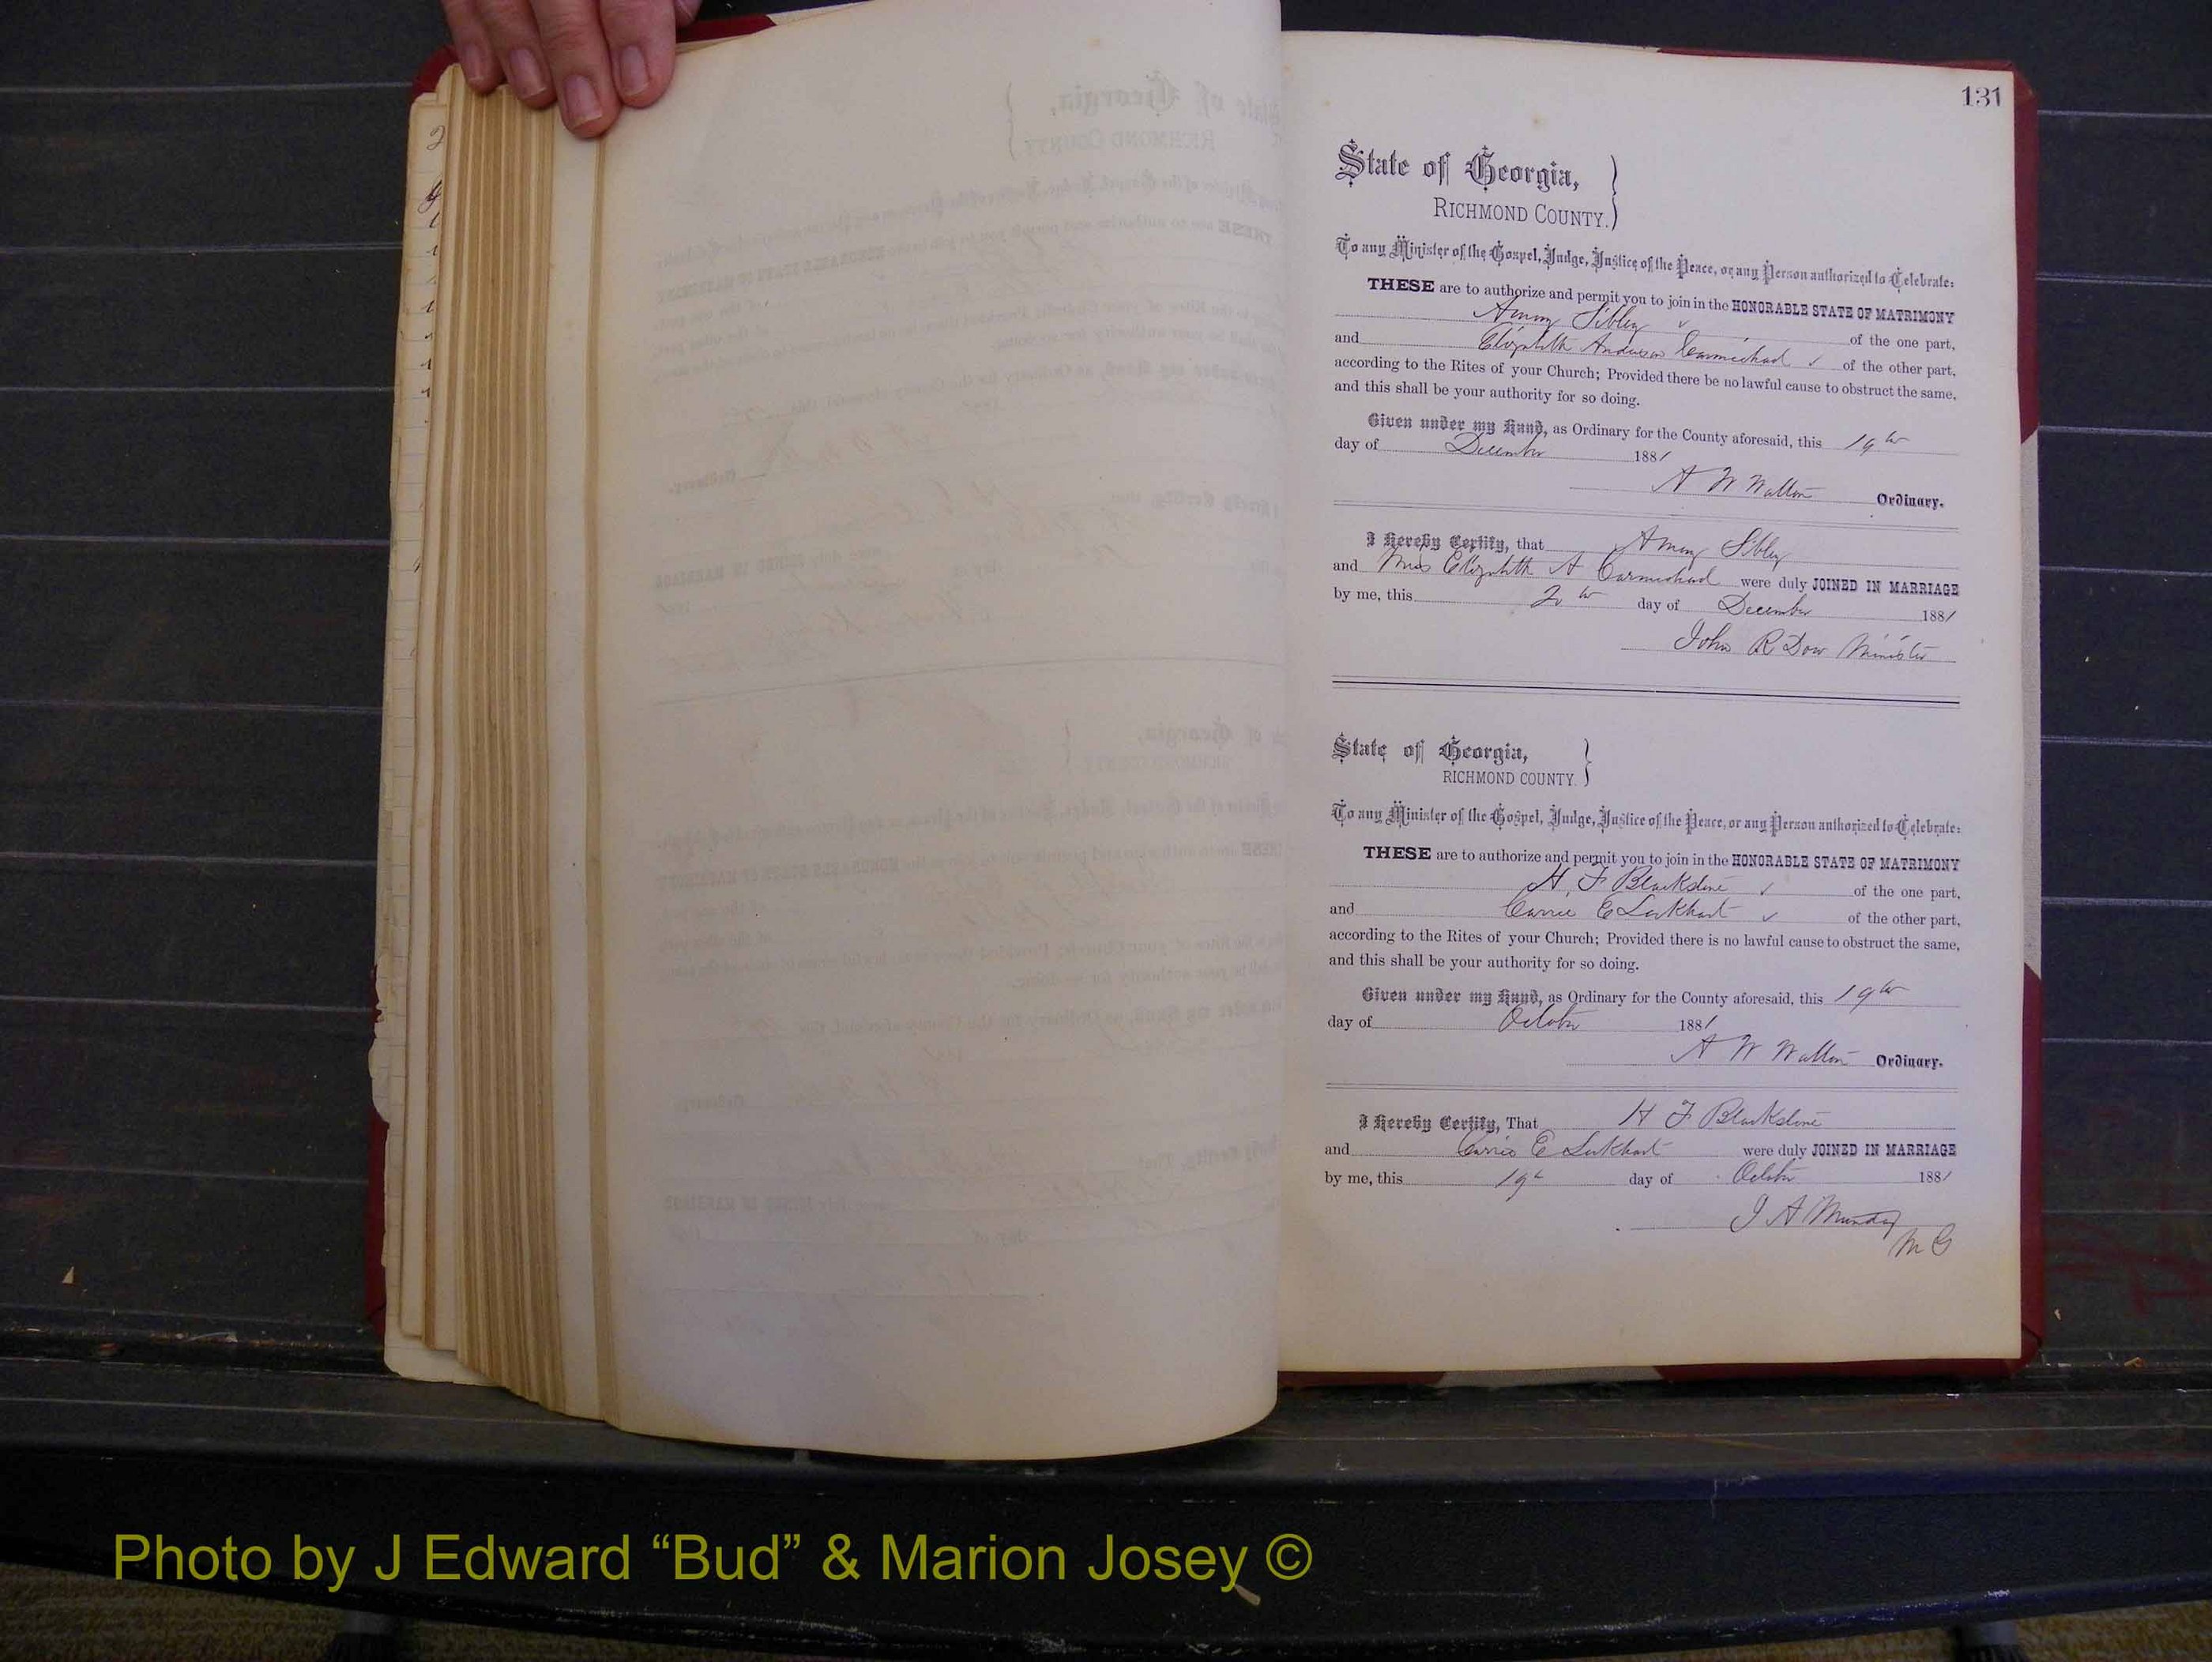 131
State of Georgia,
RICHMOND COUNTY.
To any Minister of the Gospel, Judge, Justice of the Peace, or any Person authorized to Celebrate:
THESE are to authorize and permit you to join in the HONORABLE STATE OF MATRIMONY
Amory Sibley of the one part,
and Elizabeth Anderson Carmichael of the other part,
according to the Rites of your Church; Provided there be no lawful cause to obstruct the same,
and this shall be your authority for so doing.
Given under my Hand, as Ordinary for the County aforesaid, this 19th
day of December 1881
A W Walton Ordinary.
I Hereby Certify, that Amory Sibley
and Miss Elizabeth A Carmichael were duly JOINED IN MARRIAGE
by me, this 20th day of December 1881
John R Dow Minister
State of Georgia,
RICHMOND COUNTY.
To any Minister of the Gospel, Judge, Justice of the Peace, or any Person authorized to Celebrate:
THESE are to authorize and permit you to join in the HONORABLE STATE OF MATRIMONY
H. F Blackstone of the one part,
and Carrie E Lockhart of the other part,
according to the Rites of your Church; Provided there is no lawful cause to obstruct the same,
and this shall be your authority for so doing.
Given under my Hand, as Ordinary for the County aforesaid, this 19th
day of October 1881
A W Walton Ordinary.
I Hereby Certify, That H F Blackstone
and Carrie E Lockhart were duly JOINED IN MARRIAGE
by me, this 19th day of October 1881
J A Munday
M G
Photo by J Edward “Bud” & Marion Josey ©